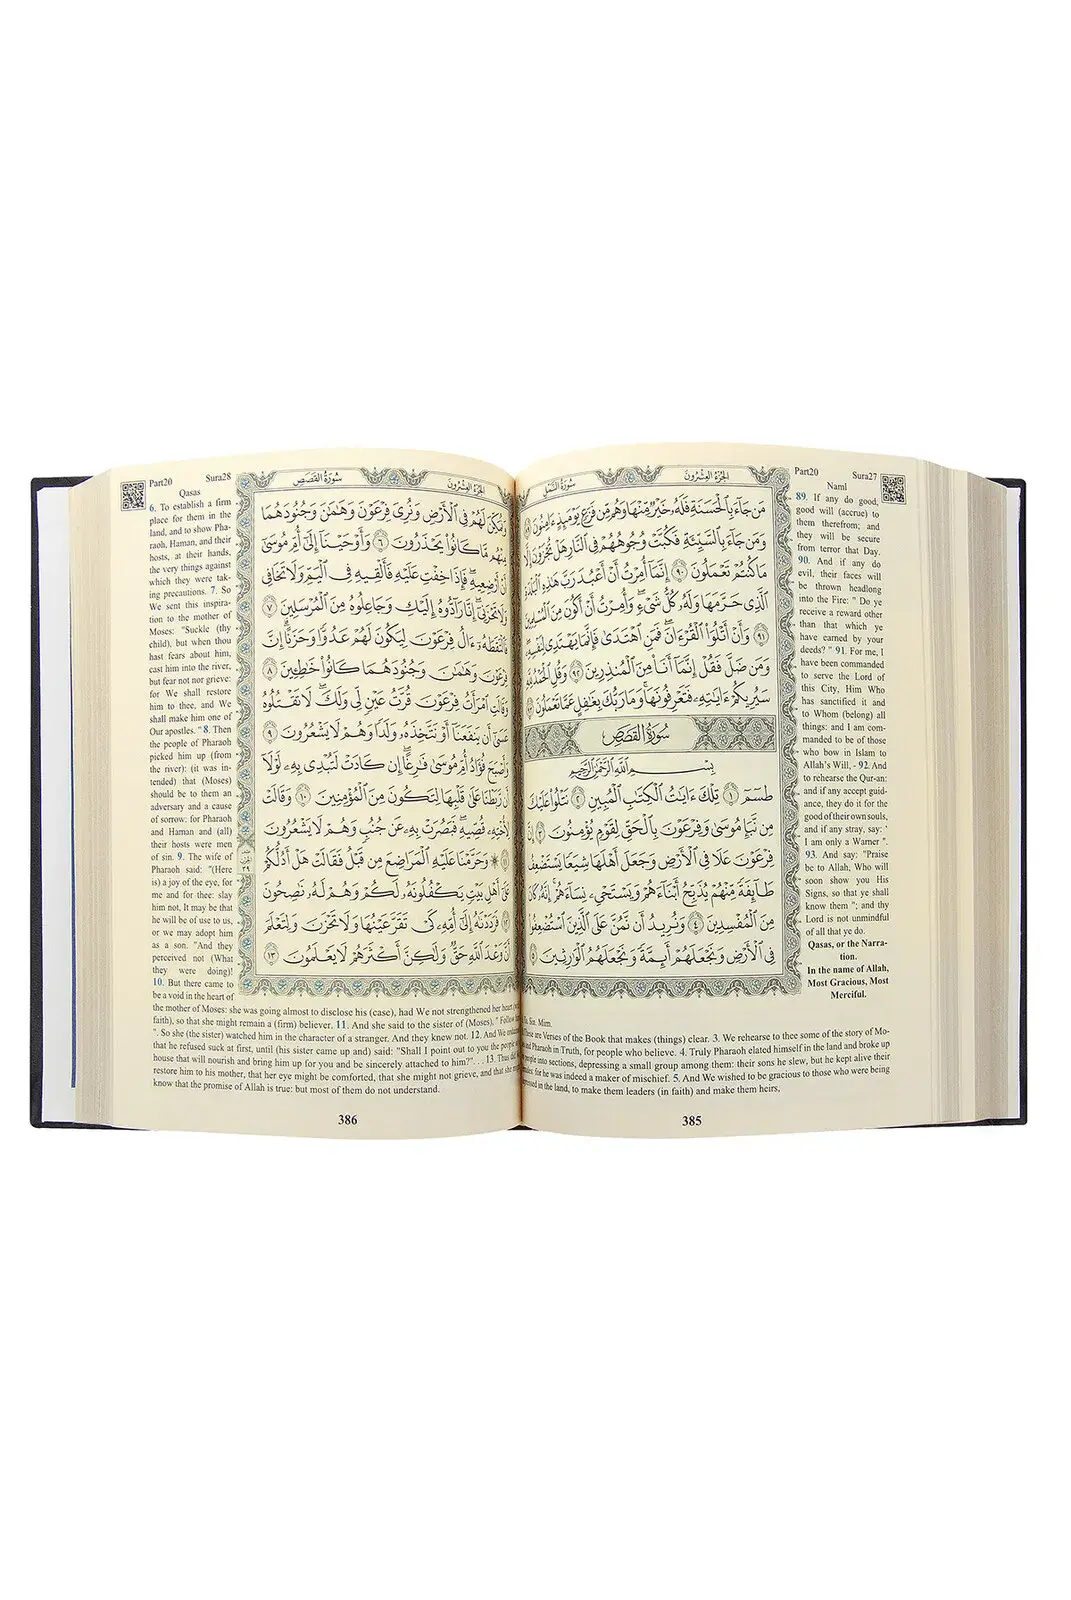 Part20 Sura27
Naml
89. If any do good,
good will (accrue) to
them therefrom; and
they will be secure
from terror that Day.
90. And if any do
evil, their faces will
be thrown headlong
into the Fire: " Do ye
receive a reward other
than that which ye
have earned by your
deeds? " 91. For me, I
have been commanded
to serve the Lord of
this City, Him Who
has sanctified it and
to Whom (belong) all
things: and I am com-
manded to be of those
who bow in Islam to
Allah's Will, - 92. And
to rehearse the Qur-an:
and if any accept guid-
ance, they do it for the
good of their own souls,
and if any stray, say: '
I am only a Warner ".
93. And say: "Praise
be to Allah, Who will
soon show you His
Signs, so that ye shall
know them "; and thy
Lord is not unmindful
of all that ye do.
Qasas, or the Narra-
tion.
In the name of Allah,
Most Gracious, Most
Merciful.
الجزء العشرون سورة النمل
مَن جَآءَ بِٱلْحَسَنَةِ فَلَهُۥ خَيْرٌ مِّنْهَا وَهُم مِّن فَزَعٍ يَوْمَئِذٍ ءَامِنُونَ
وَمَن جَآءَ بِٱلسَّيِّئَةِ فَكُبَّتْ وُجُوهُهُمْ فِى ٱلنَّارِ هَلْ تُجْزَوْنَ إِلَّا
مَا كُنتُمْ تَعْمَلُونَ ٩٠ إِنَّمَآ أُمِرْتُ أَنْ أَعْبُدَ رَبَّ هَٰذِهِ ٱلْبَلْدَةِ
ٱلَّذِى حَرَّمَهَا وَلَهُۥ كُلُّ شَىْءٍ وَأُمِرْتُ أَنْ أَكُونَ مِنَ ٱلْمُسْلِمِينَ
٩١ وَأَنْ أَتْلُوَا۟ ٱلْقُرْءَانَ فَمَنِ ٱهْتَدَىٰ فَإِنَّمَا يَهْتَدِى لِنَفْسِهِۦ
وَمَن ضَلَّ فَقُلْ إِنَّمَآ أَنَا۠ مِنَ ٱلْمُنذِرِينَ ٩٢ وَقُلِ ٱلْحَمْدُ لِلَّهِ
سَيُرِيكُمْ ءَايَٰتِهِۦ فَتَعْرِفُونَهَا وَمَا رَبُّكَ بِغَٰفِلٍ عَمَّا تَعْمَلُونَ ٩٣
سورة القصص
بِسْمِ ٱللَّهِ ٱلرَّحْمَٰنِ ٱلرَّحِيمِ
طسٓمٓ ١ تِلْكَ ءَايَٰتُ ٱلْكِتَٰبِ ٱلْمُبِينِ ٢ نَتْلُوا۟ عَلَيْكَ
مِن نَّبَإِ مُوسَىٰ وَفِرْعَوْنَ بِٱلْحَقِّ لِقَوْمٍ يُؤْمِنُونَ ٣ إِنَّ
فِرْعَوْنَ عَلَا فِى ٱلْأَرْضِ وَجَعَلَ أَهْلَهَا شِيَعًا يَسْتَضْعِفُ
طَآئِفَةً مِّنْهُمْ يُذَبِّحُ أَبْنَآءَهُمْ وَيَسْتَحْىِۦ نِسَآءَهُمْ إِنَّهُۥ كَانَ
مِنَ ٱلْمُفْسِدِينَ ٤ وَنُرِيدُ أَن نَّمُنَّ عَلَى ٱلَّذِينَ ٱسْتُضْعِفُوا۟
فِى ٱلْأَرْضِ وَنَجْعَلَهُمْ أَئِمَّةً وَنَجْعَلَهُمُ ٱلْوَٰرِثِينَ ٥
Sin. Mim.
are Verses of the Book that makes (things) clear. 3. We rehearse to thee some of the story of Mo-
and Pharaoh in Truth, for people who believe. 4. Truly Pharaoh elated himself in the land and broke up
people into sections, depressing a small group among them: their sons he slew, but he kept alive their
for he was indeed a maker of mischief. 5. And We wished to be gracious to those who were being
in the land, to make them leaders (in faith) and make them heirs,
385
Part20 Sura28
Qasas
6. To establish a firm
place for them in the
land, and to show Pha-
raoh, Haman, and their
hosts, at their hands,
the very things against
which they were tak-
ing precautions. 7. So
We sent this inspira-
tion to the mother of
Moses: "Suckle (thy
child), but when thou
hast fears about him,
cast him into the river,
but fear not nor grieve:
for We shall restore
him to thee, and We
shall make him one of
Our apostles. " 8. Then
the people of Pharaoh
picked him up (from
the river): (it was in-
tended) that (Moses)
should be to them an
adversary and a cause
of sorrow: for Pharaoh
and Haman and (all)
their hosts were men
of sin. 9. The wife of
Pharaoh said: "(Here
is) a joy of the eye, for
me and for thee: slay
him not, It may be that
he will be of use to us,
or we may adopt him
as a son. "And they
perceived not (What
they were doing)!
10. But there came to
be a void in the heart of
the mother of Moses: she was going almost to disclose his (case), had We not strengthened her heart
faith), so that she might remain a (firm) believer. 11. And she said to the sister of (Moses), " Follow
". So she (the sister) watched him in the character of a stranger. And they knew not. 12. And We
that he refused suck at first, until (his sister came up and) said: "Shall I point out to you the people
house that will nourish and bring him up for you and be sincerely attached to him?". . . 13. Thus did
restore him to his mother, that her eye might be comforted, that she might not grieve, and that she
know that the promise of Allah is true: but most of them do not understand.
الجزء العشرون سورة القصص
وَنُمَكِّنَ لَهُمْ فِى ٱلْأَرْضِ وَنُرِىَ فِرْعَوْنَ وَهَٰمَٰنَ وَجُنُودَهُمَا
مِنْهُم مَّا كَانُوا۟ يَحْذَرُونَ ٦ وَأَوْحَيْنَآ إِلَىٰٓ أُمِّ مُوسَىٰٓ
أَنْ أَرْضِعِيهِ فَإِذَا خِفْتِ عَلَيْهِ فَأَلْقِيهِ فِى ٱلْيَمِّ وَلَا تَخَافِى
وَلَا تَحْزَنِىٓ إِنَّا رَآدُّوهُ إِلَيْكِ وَجَاعِلُوهُ مِنَ ٱلْمُرْسَلِينَ ٧
فَٱلْتَقَطَهُۥٓ ءَالُ فِرْعَوْنَ لِيَكُونَ لَهُمْ عَدُوًّا وَحَزَنًا إِنَّ
فِرْعَوْنَ وَهَٰمَٰنَ وَجُنُودَهُمَا كَانُوا۟ خَٰطِـِٔينَ ٨
وَقَالَتِ ٱمْرَأَتُ فِرْعَوْنَ قُرَّتُ عَيْنٍ لِّى وَلَكَ لَا تَقْتُلُوهُ
عَسَىٰٓ أَن يَنفَعَنَآ أَوْ نَتَّخِذَهُۥ وَلَدًا وَهُمْ لَا يَشْعُرُونَ ٩
وَأَصْبَحَ فُؤَادُ أُمِّ مُوسَىٰ فَٰرِغًا إِن كَادَتْ لَتُبْدِى بِهِۦ لَوْلَآ
أَن رَّبَطْنَا عَلَىٰ قَلْبِهَا لِتَكُونَ مِنَ ٱلْمُؤْمِنِينَ ١٠ وَقَالَتْ
لِأُخْتِهِۦ قُصِّيهِ فَبَصُرَتْ بِهِۦ عَن جُنُبٍ وَهُمْ لَا يَشْعُرُونَ
١١ وَحَرَّمْنَا عَلَيْهِ ٱلْمَرَاضِعَ مِن قَبْلُ فَقَالَتْ هَلْ أَدُلُّكُمْ
عَلَىٰٓ أَهْلِ بَيْتٍ يَكْفُلُونَهُۥ لَكُمْ وَهُمْ لَهُۥ نَٰصِحُونَ
١٢ فَرَدَدْنَٰهُ إِلَىٰٓ أُمِّهِۦ كَىْ تَقَرَّ عَيْنُهَا وَلَا تَحْزَنَ وَلِتَعْلَمَ
أَنَّ وَعْدَ ٱللَّهِ حَقٌّ وَلَٰكِنَّ أَكْثَرَهُمْ لَا يَعْلَمُونَ ١٣
386